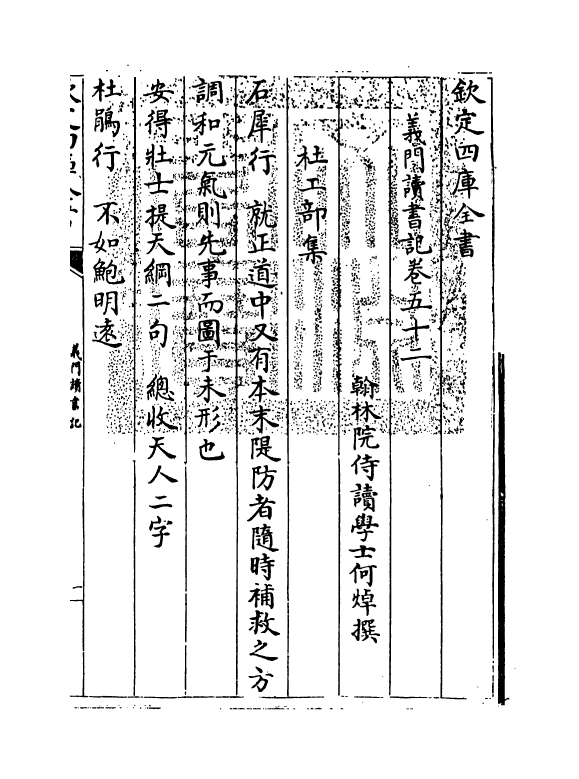 欽定四庫全書
義門讀書記卷五十二
翰林院侍讀學士何焯撰
杜工部集
石犀行　就正道中又有本末隄防者隨時補救之方
調和元氣則先事而圖于未形也
安得壯士提天綱二句　總收天人二字
杜鵑行　不如鮑明遠
義門讀書記